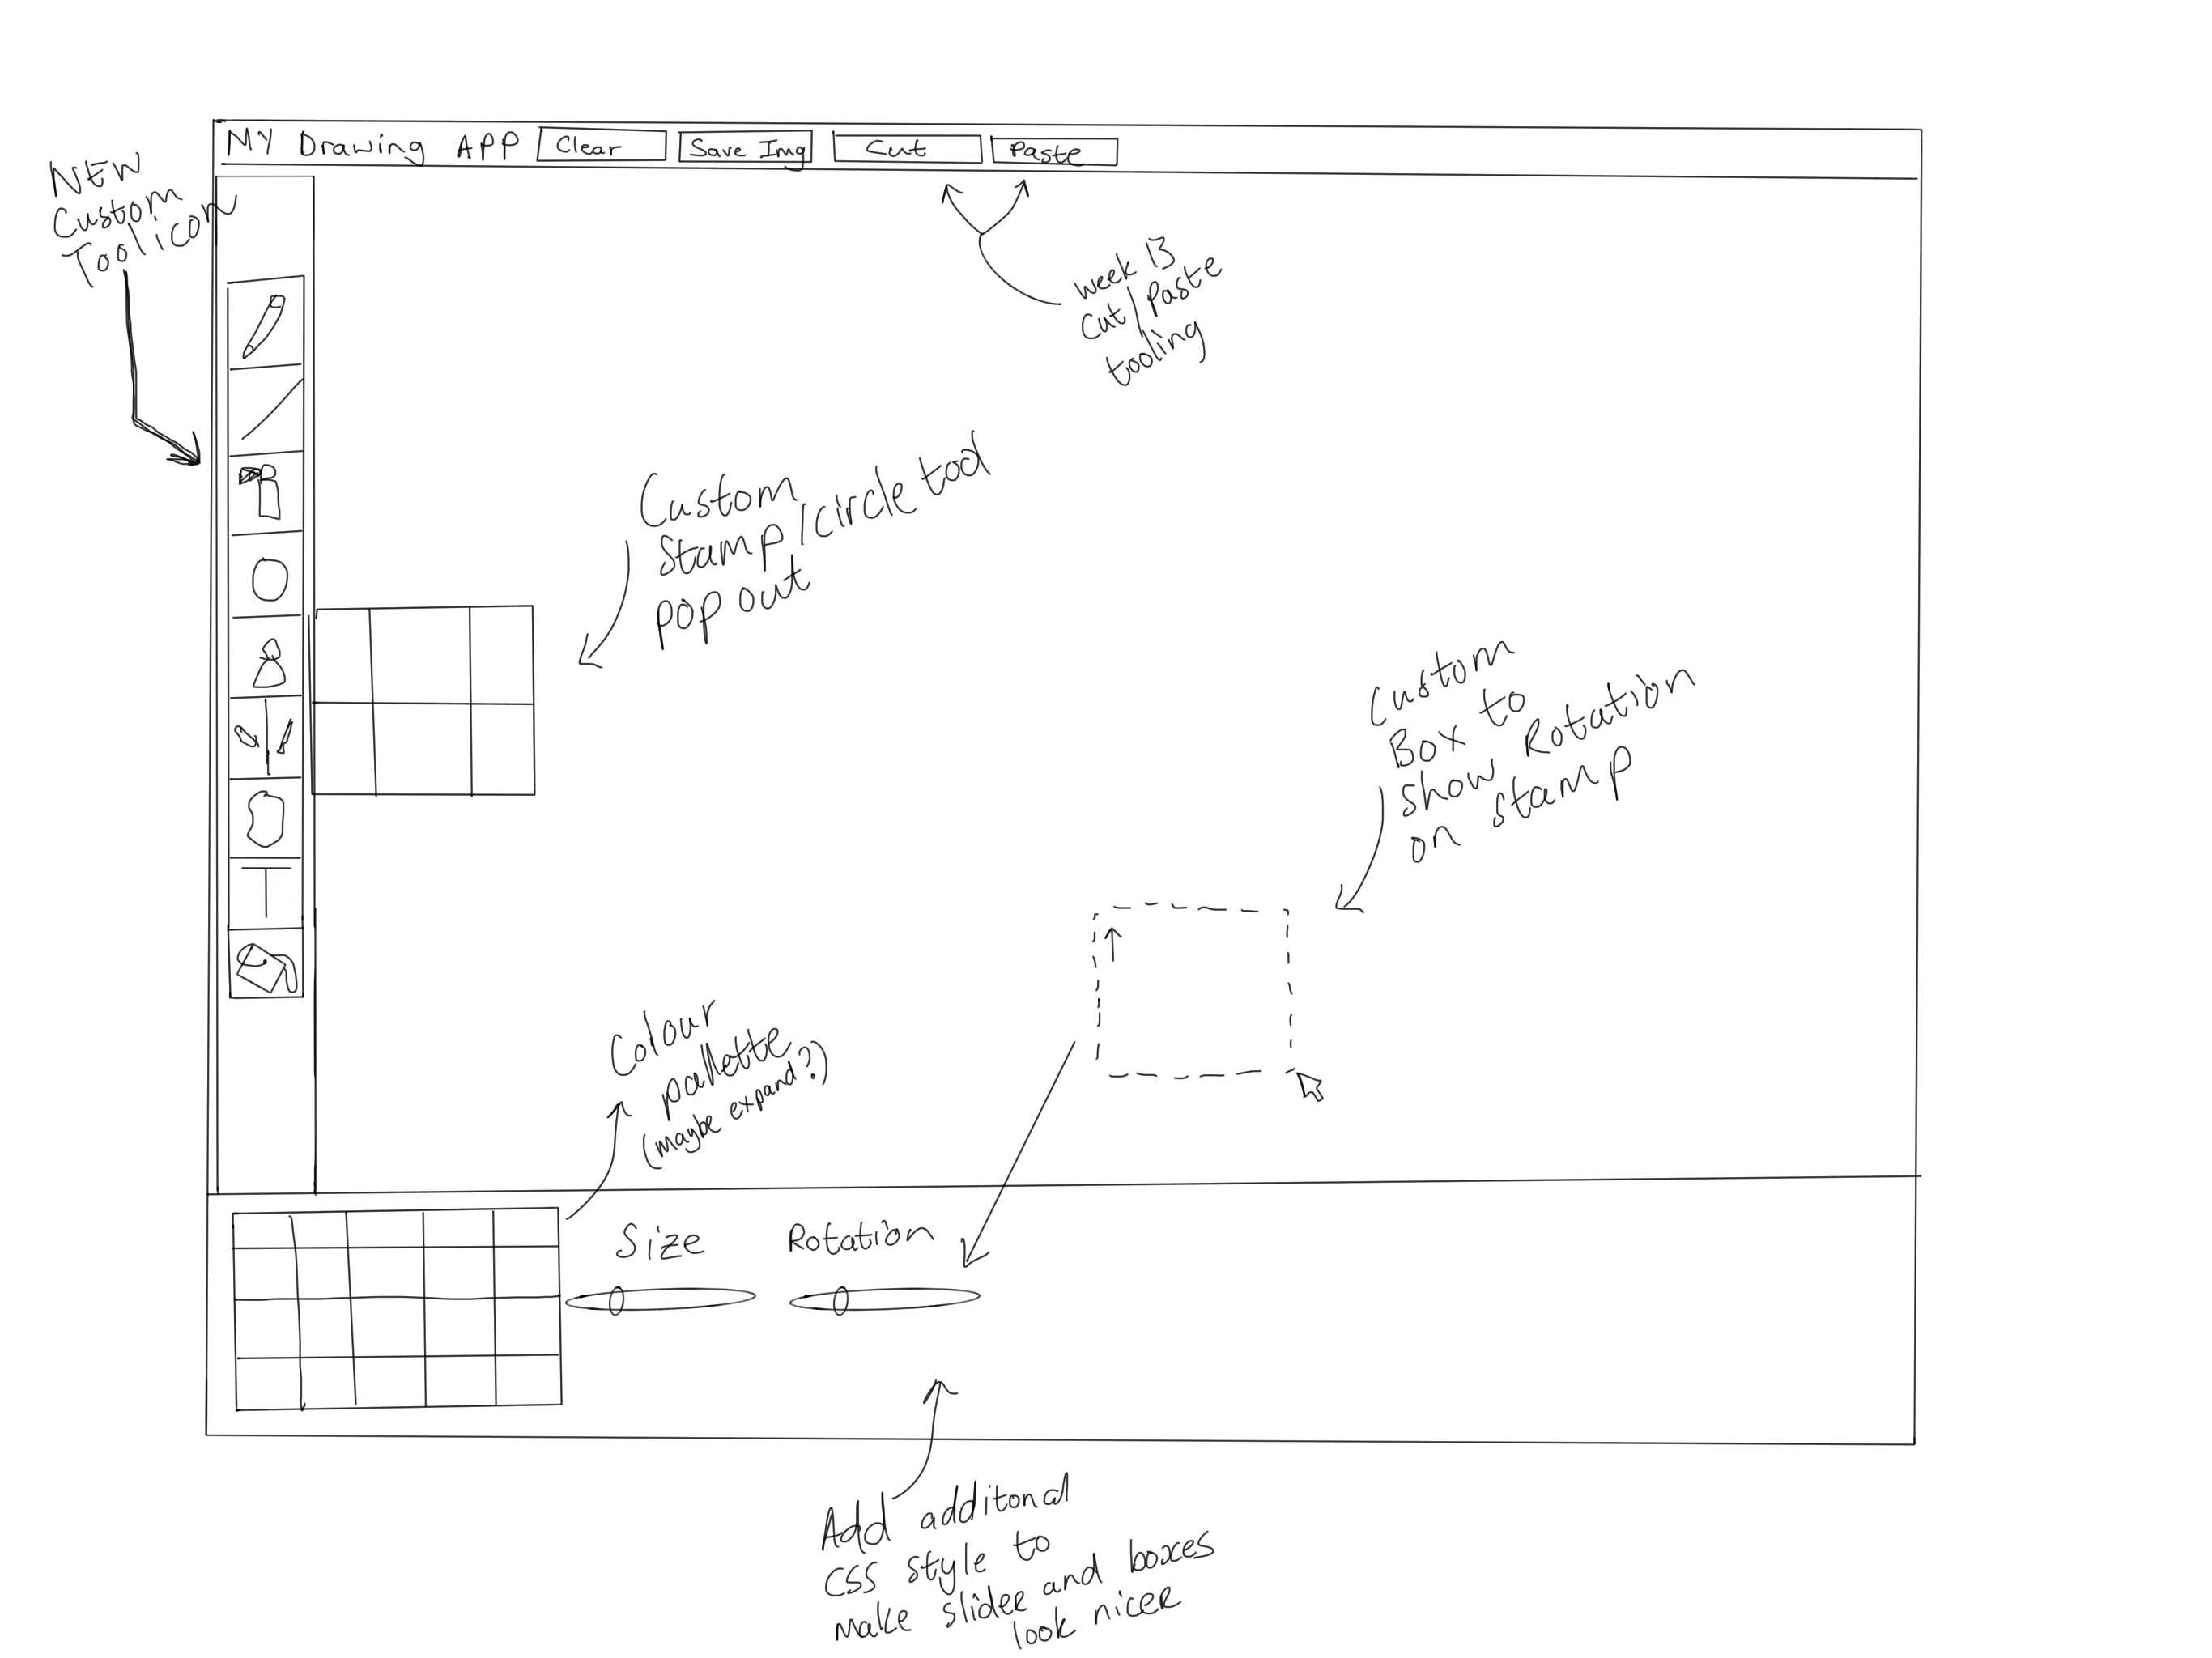 MY Drawing APP
Clear
Save Img
Cut
Paste
NEW
Custom
Tool icon
week 13
Cut/Paste
tooling
Custom
Stamp/circle tool
pop out
Custom
Box to
show Rotation
on stamp
Colour
pallette
(maybe expand?)
T
Size
Rotation
Add additonal
CSS style to
make slider and boxes
look nicer